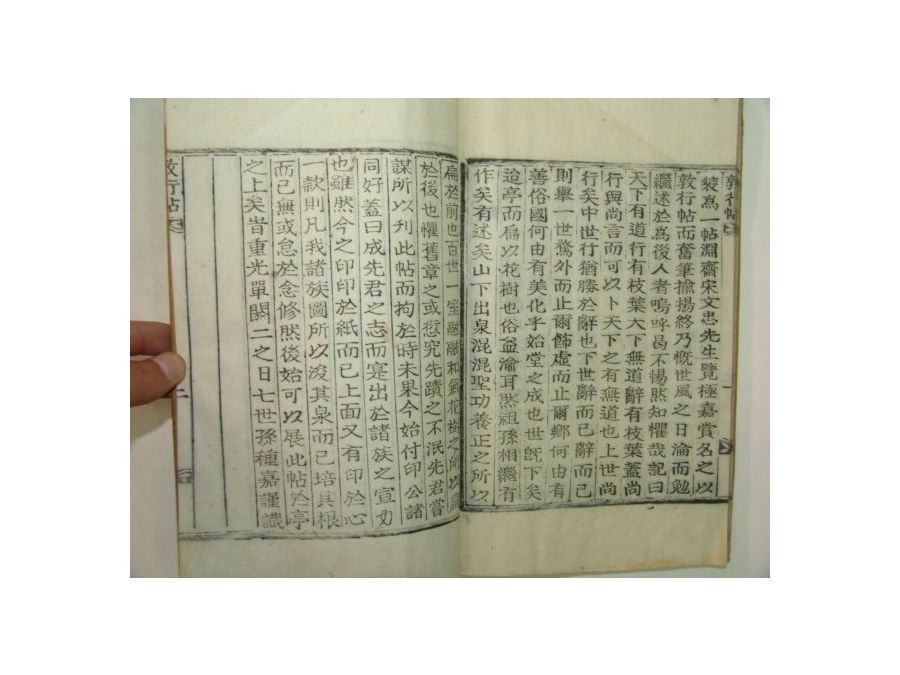 裝爲一帖淵齋宋文忠先生覽極嘉賞名之以
敦行帖而奮筆揄揚終乃慨世風之日淪而勉
繼述於爲後人者嗚呼曷不惕然知懼哉記曰
天下有道行有枝葉天下無道辭有枝葉蓋尚
行與尚言而可以卜天下之有無道也上世尚
行矣中世行猶勝於辭也下世辭而已辭而已
則舉一世騖外而止爾飾虛而止爾鄕何由有
善俗國何由有美化乎始堂之成也世旣下矣
迨亭而扁以花樹也俗益渝耳然祖孫相繼有
作矣有述矣山下出泉混混聖功養正之所以
扁於前也百世一室融融和氣花樹之所以
於後也懼舊章之或愆究先蹟之不泯先君嘗
謀所以刊此帖而拘於時未果今始付印公諸
同好蓋曰成先君之志而寔出於諸族之宣力
也雖然今之印印於紙而已上面又有印於心
一款則凡我諸族圖所以浚其泉而已培其根
而已無或怠於念修然後始可以展此帖於亭
之上矣旹重光單閼二之日七世孫種嘉謹識
敦行帖
二
敦行帖